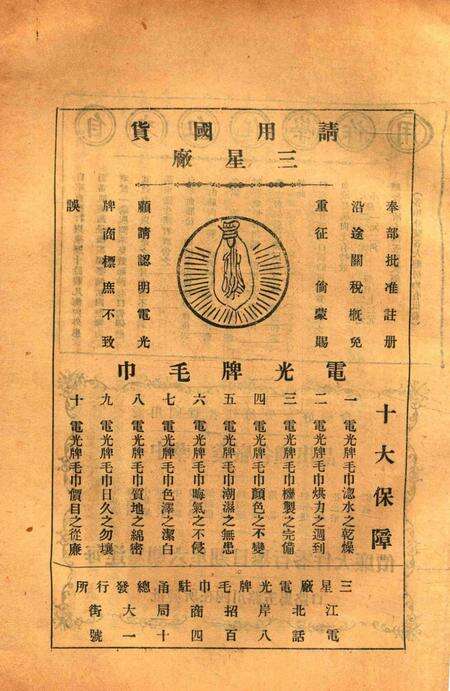 請用國貨
三星廠
奉部批准註册
沿途關稅概免
重征 倘蒙賜
顧請認明電光
牌商標庶不致
誤
電光牌毛巾
十大保障
一 電光牌毛巾滤水之乾燥
二 電光牌毛巾烘力之週到
三 電光牌毛巾機製之完備
四 電光牌毛巾顏色之不變
五 電光牌毛巾潮濕之無患
六 電光牌毛巾晦氣之不侵
七 電光牌毛巾色澤之潔白
八 電光牌毛巾質地之綿密
九 電光牌毛巾日久之勿壞
十 電光牌毛巾價目之從廉
三星廠電光牌毛巾駐甬總發行所
江北岸招商局大街
電話八百四十一號